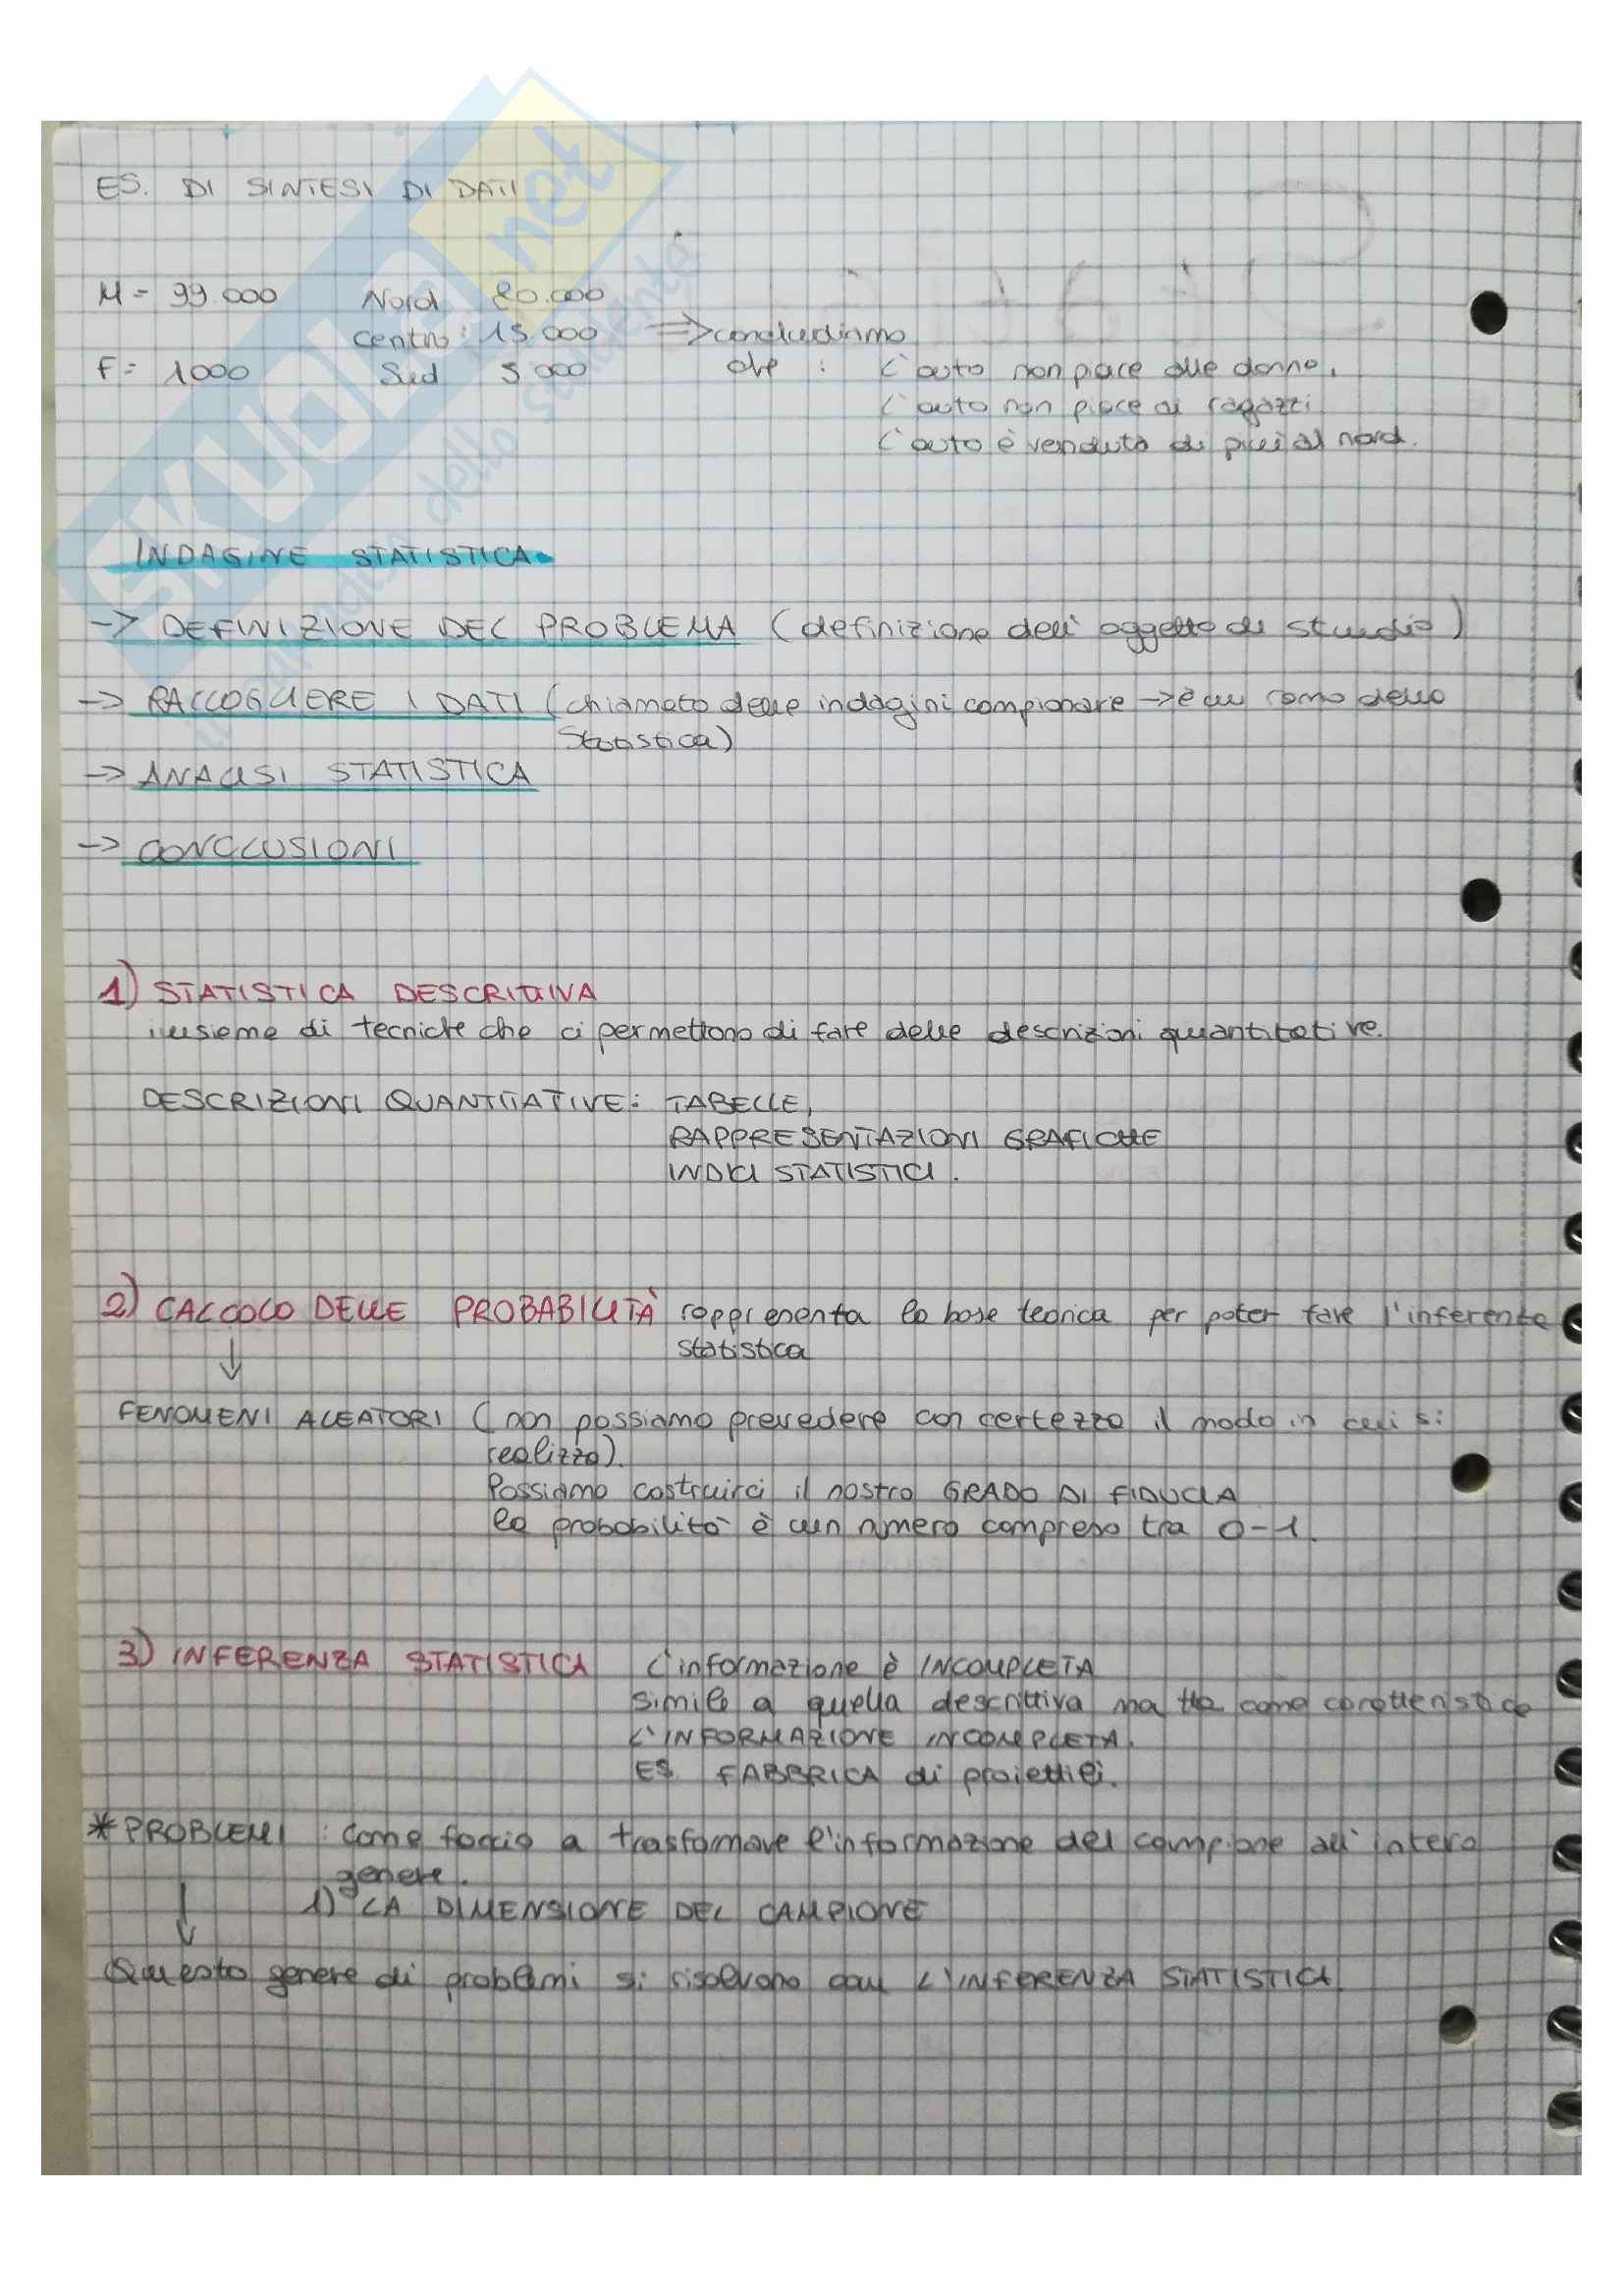 ES. DI SINTESI DI DATI
M = 99.000 Nord 80.000
Centro : 15.000 => concludiamo
F = 1000 Sud 5000 che : L'auto non piace alle donne,
L'auto non piace ai ragazzi
L'auto è venduta di più al nord.
INDAGINE STATISTICA
-> DEFINIZIONE DEL PROBLEMA (definizione dell'oggetto di studio)
-> RACCOGLIERE I DATI (chiamato delle indagini campionare -> è un ramo della
Statistica)
-> ANALISI STATISTICA
-> CONCLUSIONI
1) STATISTICA DESCRITTIVA
insieme di tecniche che ci permettono di fare delle descrizioni quantitative.
DESCRIZIONI QUANTITATIVE: TABELLE,
RAPPRESENTAZIONI GRAFICHE
INDICI STATISTICI.
2) CALCOLO DELLE PROBABILITÀ rappresenta la base teorica per poter fare l'inferenza
statistica
↓
FENOMENI ALEATORI (non possiamo prevedere con certezza il modo in cui si
realizza).
Possiamo costruirci il nostro GRADO DI FIDUCIA
la probabilità è un numero compreso tra 0-1.
3) INFERENZA STATISTICA L'informazione è INCOMPLETA
simile a quella descrittiva ma ha come caratteristica
L'INFORMAZIONE INCOMPLETA.
ES FABBRICA di proiettili.
*PROBLEMI : Come faccio a trasformare l'informazione del campione all'intero
genere.
↓ 1) LA DIMENSIONE DEL CAMPIONE
Questo genere di problemi si risolvono con L'INFERENZA STATISTICA.
SKUOLA.net
il paradiso dello studente